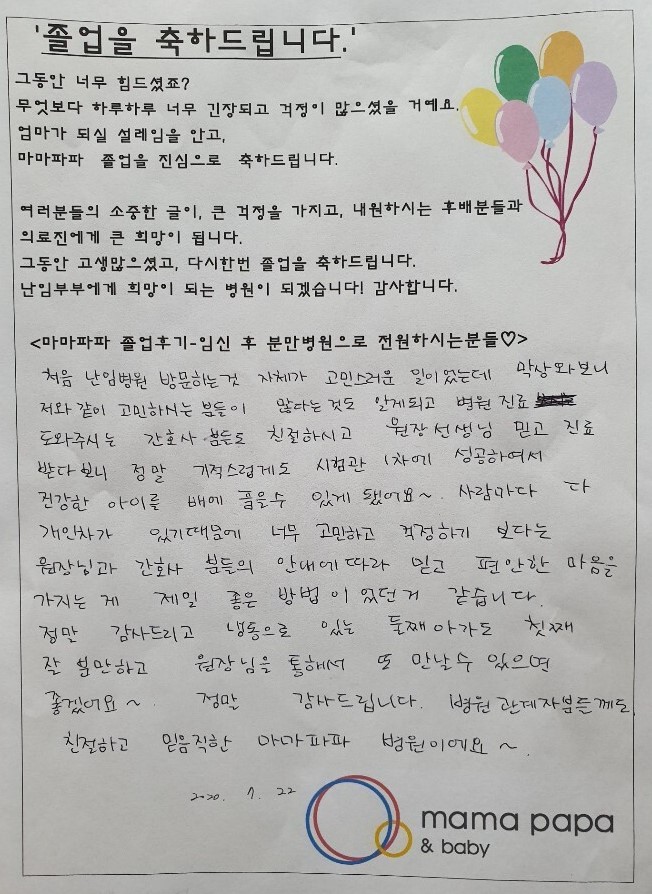 '졸업을 축하드립니다.'
그동안 너무 힘드셨죠?
무엇보다 하루하루 너무 긴장되고 걱정이 많으셨을 거예요.
엄마가 되실 설레임을 안고,
마마파파 졸업을 진심으로 축하드립니다.
여러분들의 소중한 글이, 큰 걱정을 가지고, 내원하시는 후배분들과
의료진에게 큰 희망이 됩니다.
그동안 고생많으셨고, 다시한번 졸업을 축하드립니다.
난임부부에게 희망이 되는 병원이 되겠습니다! 감사합니다.
<마마파파 졸업후기-임신 후 분만병원으로 전원하시는분들♡>
처음 난임병원 방문하는것 자체가 고민스러운 일이었는데 막상와보니
저와 같이 고민하시는 분들이 많다는것도 알게되고 병원 진료
도와주시는 간호사 분들도 친절하시고 원장선생님 믿고 진료
받다보니 정말 기적스럽게도 시험관 1차에 성공하여서
건강한 아이를 배에 품을수 있게 됐어요~. 사람마다 다
개인차가 있기때문에 너무 고민하고 걱정하기 보다는
원장님과 간호사 분들의 안내에따라 믿고 편안한 마음을
가지는 게 제일 좋은 방법이었던거 같습니다.
정말 감사드리고 냉동으로 있는 둘째아가도 첫째
잘 분만하고 원장님을 통해서 또 만날수 있으면
좋겠어요~. 정말 감사드립니다. 병원관계자분들께도.
친절하고 믿음직한 마마파파 병원이에요~.
2020. 7. 22
mama papa
& baby